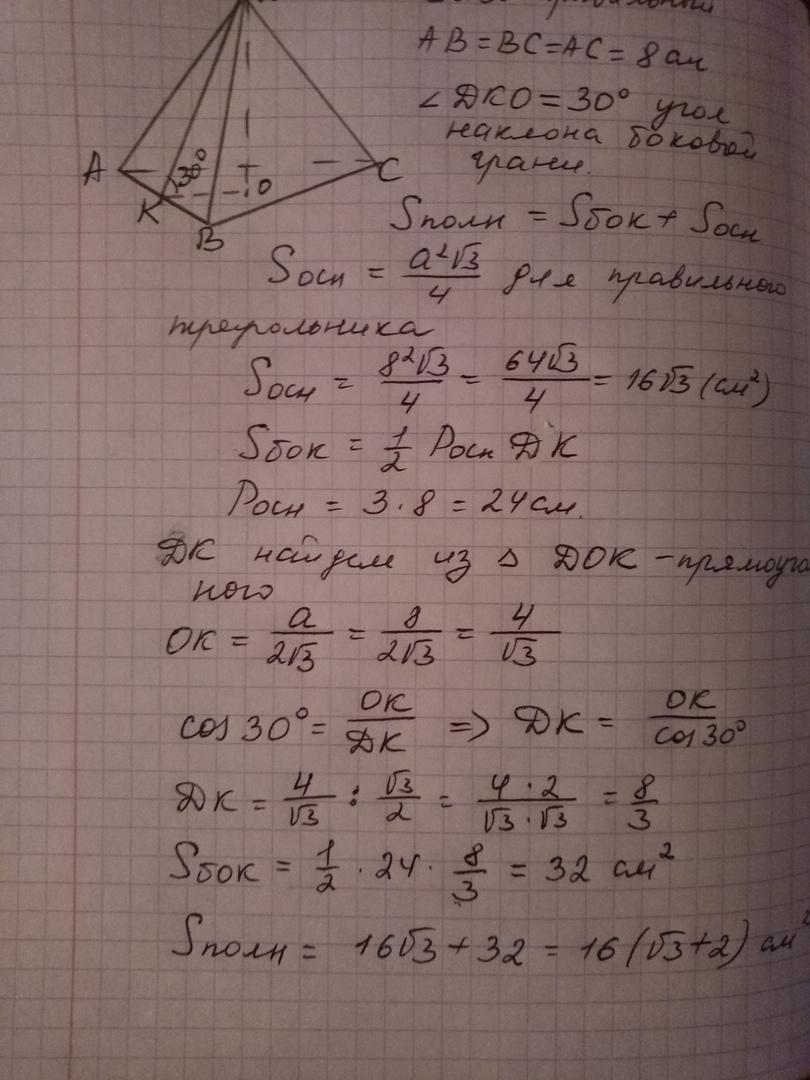 AB = BC = AC = 8 см
∠ ДКО = 30° угол
наклона боковой
грани.
A
30°
O
C
K
B
Sполн = Sбок + Sосн
Sосн = a²√3/4 для правильного
треугольника
Sосн = 8²√3/4 = 64√3/4 = 16√3 (см²)
Sбок = 1/2 Pосн ДК
Pосн = 3 · 8 = 24 см.
ДК найдем из △ ДОК - прямоуго
ного
OK = a/2√3 = 8/2√3 = 4/√3
cos 30° = OK/ДК => ДК = OK/cos 30°
ДК = 4/√3 : √3/2 = 4 · 2/√3 · √3 = 8/3
Sбок = 1/2 · 24 · 8/3 = 32 см²
Sполн = 16√3 + 32 = 16 (√3 + 2) см²